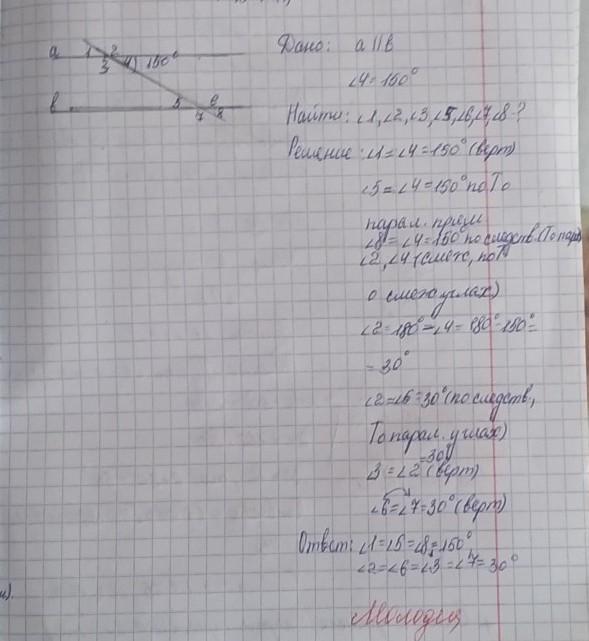 a 1 2
3 4) 150°
b 5 6
7 8
Дано: a || b
∠4 = 150°
Найти: ∠1, ∠2, ∠3, ∠5, ∠6, ∠7, ∠8 - ?
Решение: ∠1 = ∠4 = 150° (верт)
∠5 = ∠4 = 150° по То
парал. прям
∠8 = ∠4 = 150° по следств. (То пар)
∠2, ∠4 (смеж, по То
о смежн углах)
∠2 = 180° - ∠4 = 180° - 150° =
= 30°
∠2 = ∠6 = 30° (по следств,
То парал. углах)
∠3 = ∠2 = 30° (верт)
∠6 = ∠7 = 30° (верт)
Ответ: ∠1 = ∠5 = ∠8 = 150°
∠2 = ∠6 = ∠3 = ∠7 = 30°
Молодец